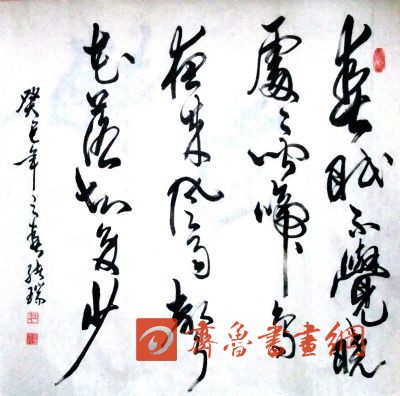 春眠不覺曉
處々聞啼鳥
夜來風雨聲
花落知多少
癸巳年之春
齊魯書畫網